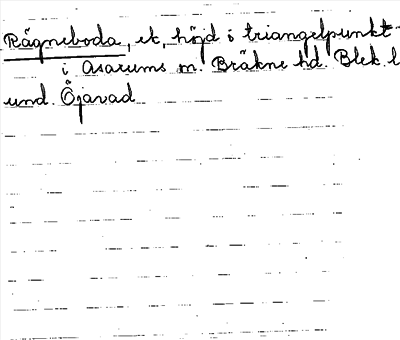 Rågneboda, et, höjd o triangelpunkt
i Asarums m. Bräkne hd. Blek. l
und. Öjavad